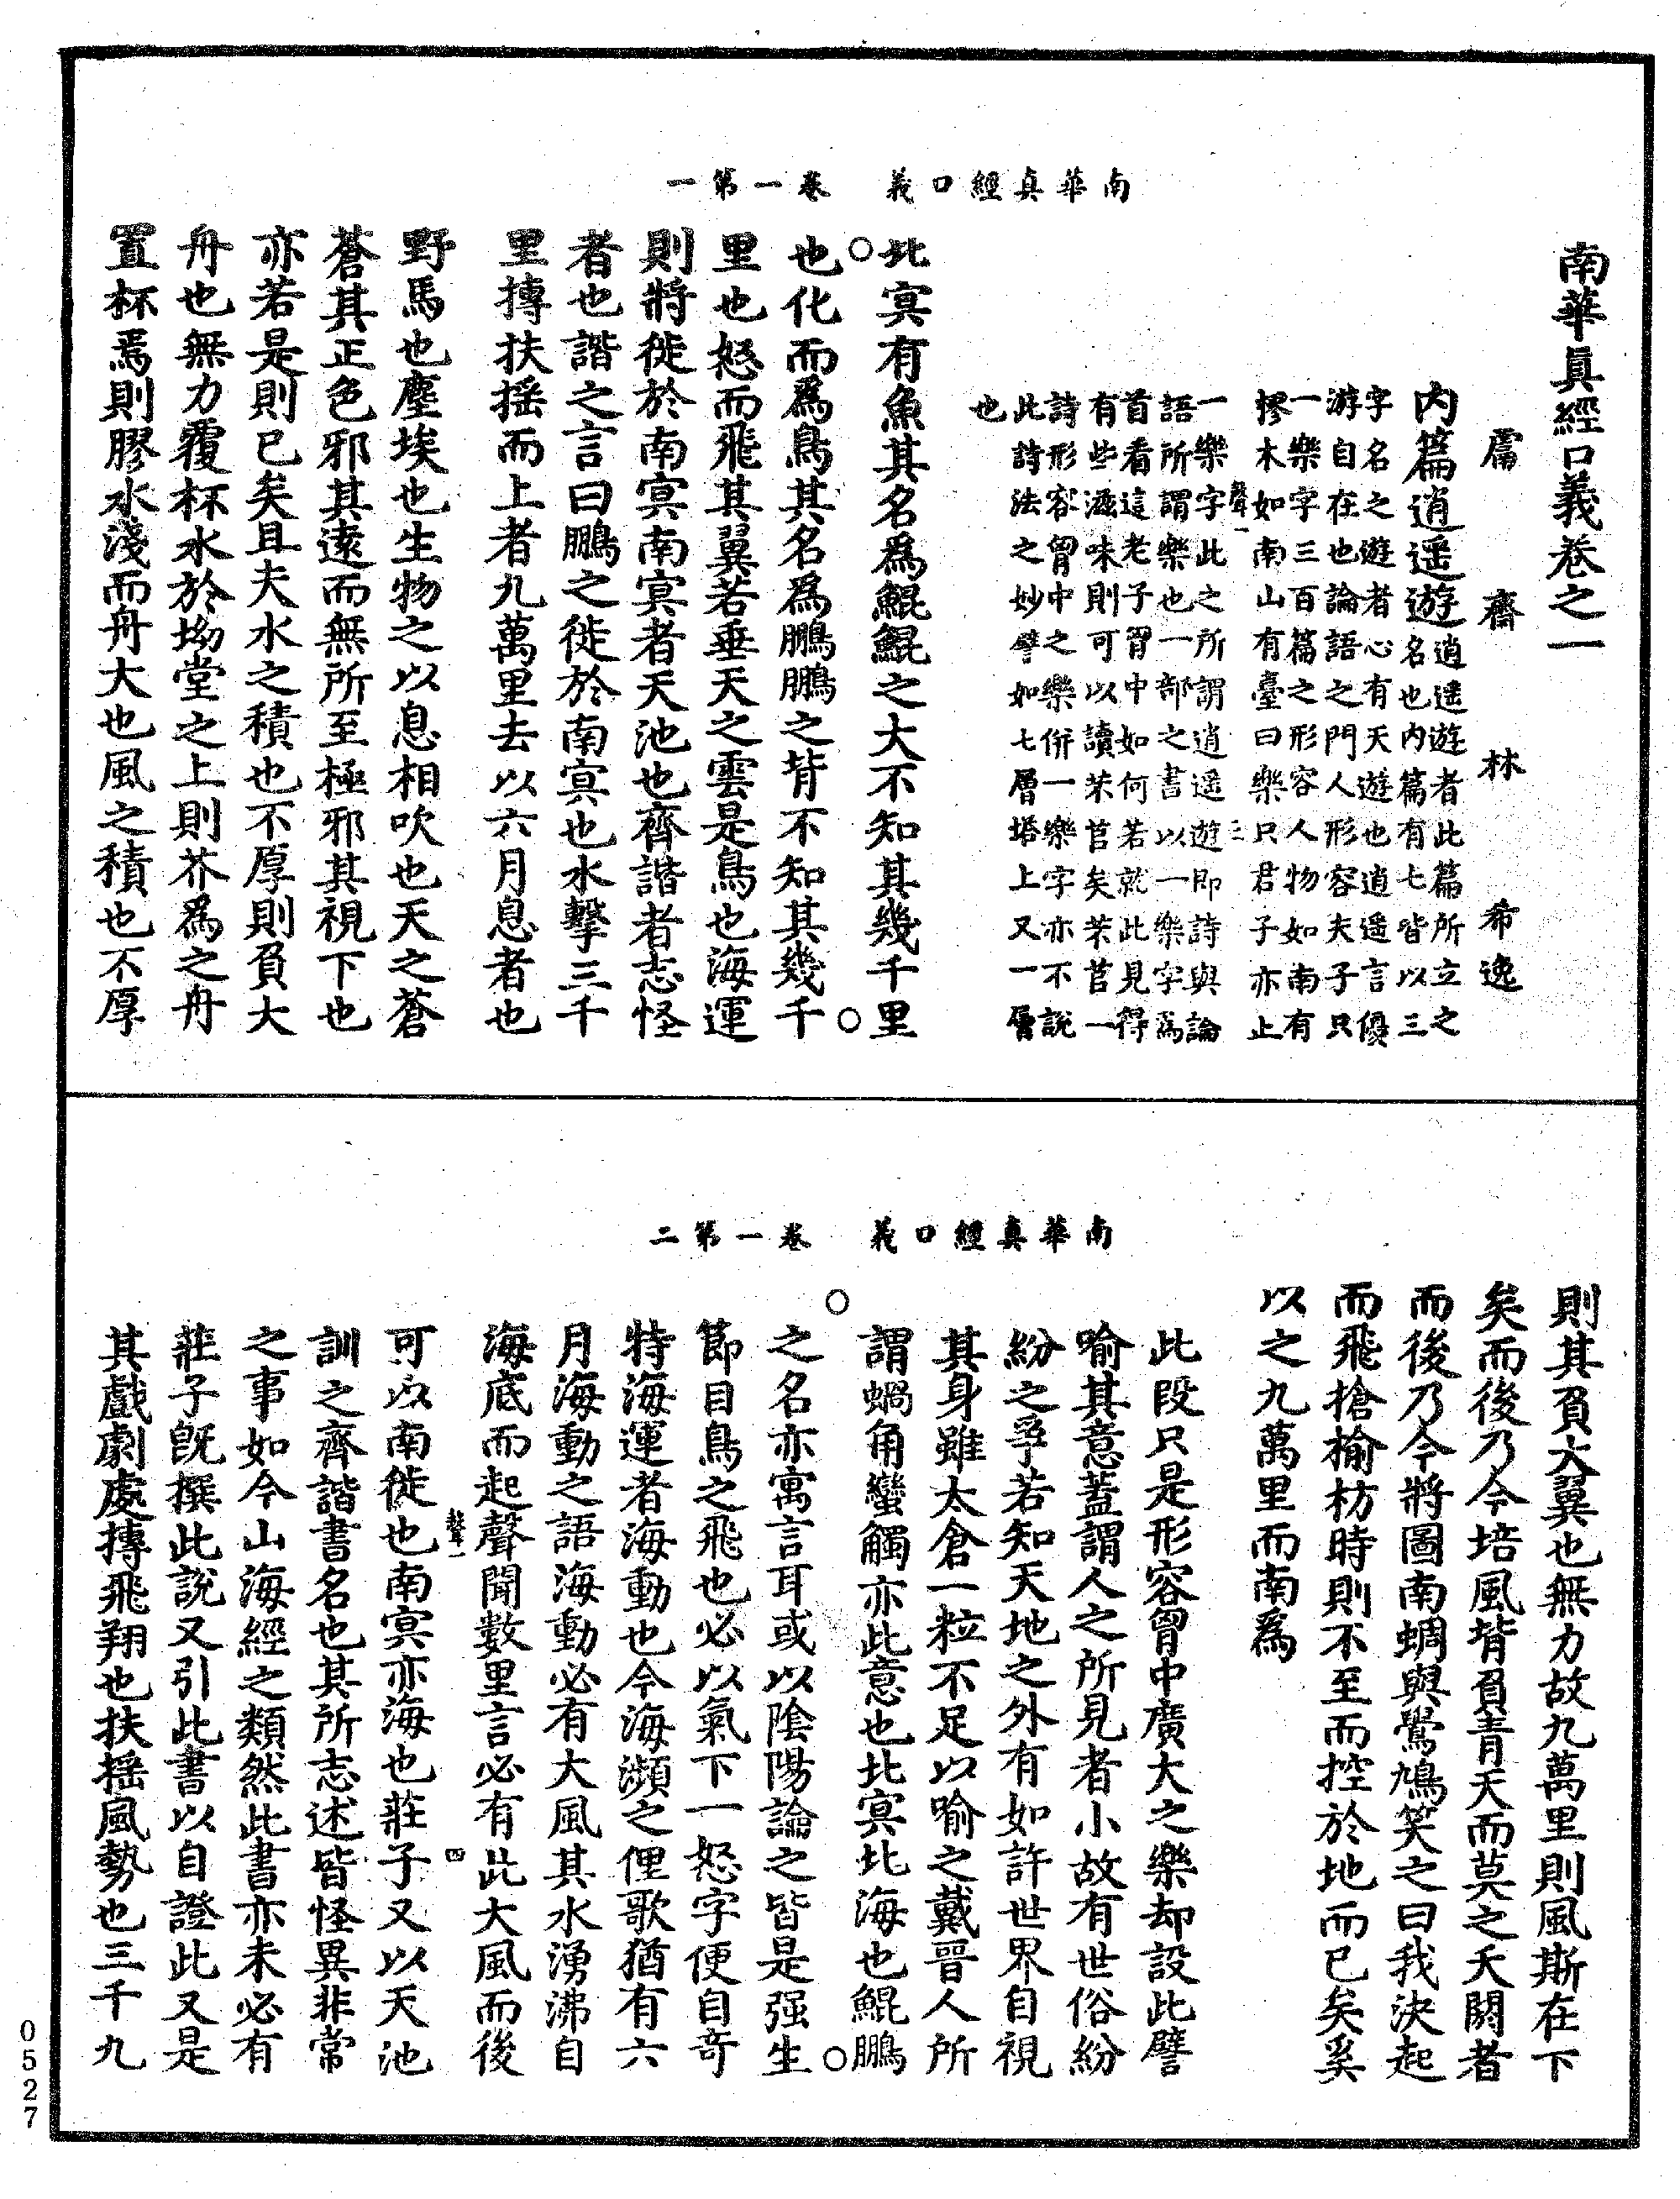 南華真經口義　卷一第一
南華眞經口義卷之一
鬳齋林希逸
內篇逍遥遊逍遥遊者此篇所立之
名也內篇有七皆以三
字名之遊者心有天遊也逍遥言優
游自在也論語之門人形容夫子只
一樂字三百篇之形容人物如南有
樛木如南山有臺曰樂只君子亦止
聲一　三
一樂字此之所謂逍遥遊即詩與論
語所謂樂也一部之書以一樂字爲
首看這老子胷中如何若就此見得
有些滋味則可以讀芣苢矣芣苢一
詩形容胷中之樂併一樂字亦不說
此詩法之妙譬如七層塔上又一層
也
北冥有魚其名爲鯤鯤之大不知其幾千里
○　○
也化而爲鳥其名爲鵬鵬之背不知其幾千
里也怒而飛其翼若垂天之雲是鳥也海運
則將徙於南冥南冥者天池也齊諧者志怪
者也諧之言曰鵬之徙於南冥也水擊三千
里摶扶摇而上者九萬里去以六月息者也
野馬也塵埃也生物之以息相吹也天之蒼
蒼其正色邪其遠而無所至極邪其視下也
亦若是則已矣且夫水之積也不厚則負大
舟也無力覆杯水於坳堂之上則芥爲之舟
置杯焉則膠水淺而舟大也風之積也不厚
南華真經口義　卷一第二
則其負大翼也無力故九萬里則風斯在下
矣而後乃今培風背負青天而莫之夭閼者
而後乃今將圖南蜩與鷽鳩笑之曰我決起
而飛搶榆枋時則不至而控於地而已矣奚
以之九萬里而南爲
此段只是形容胷中廣大之樂却設此譬
喻其意蓋謂人之所見者小故有世俗紛
紛之爭若知天地之外有如許世界自視
其身雖太倉一粒不足以喻之戴晋人所
謂蝸角蠻觸亦此意也北冥北海也鯤鵬
○　○
之名亦寓言耳或以陰陽論之皆是强生
節目鳥之飛也必以氣下一怒字便自奇
特海運者海動也今海瀕之俚歌猶有六
月海動之語海動必有大風其水湧沸自
海底而起聲聞數里言必有此大風而後
聲一　四
可以南徙也南冥亦海也莊子又以天池
訓之齊諧書名也其所志述皆怪異非常
之事如今山海經之類然此書亦未必有
莊子旣撰此說又引此書以自證此又是
其戲劇處摶飛翔也扶摇風勢也三千九
0527